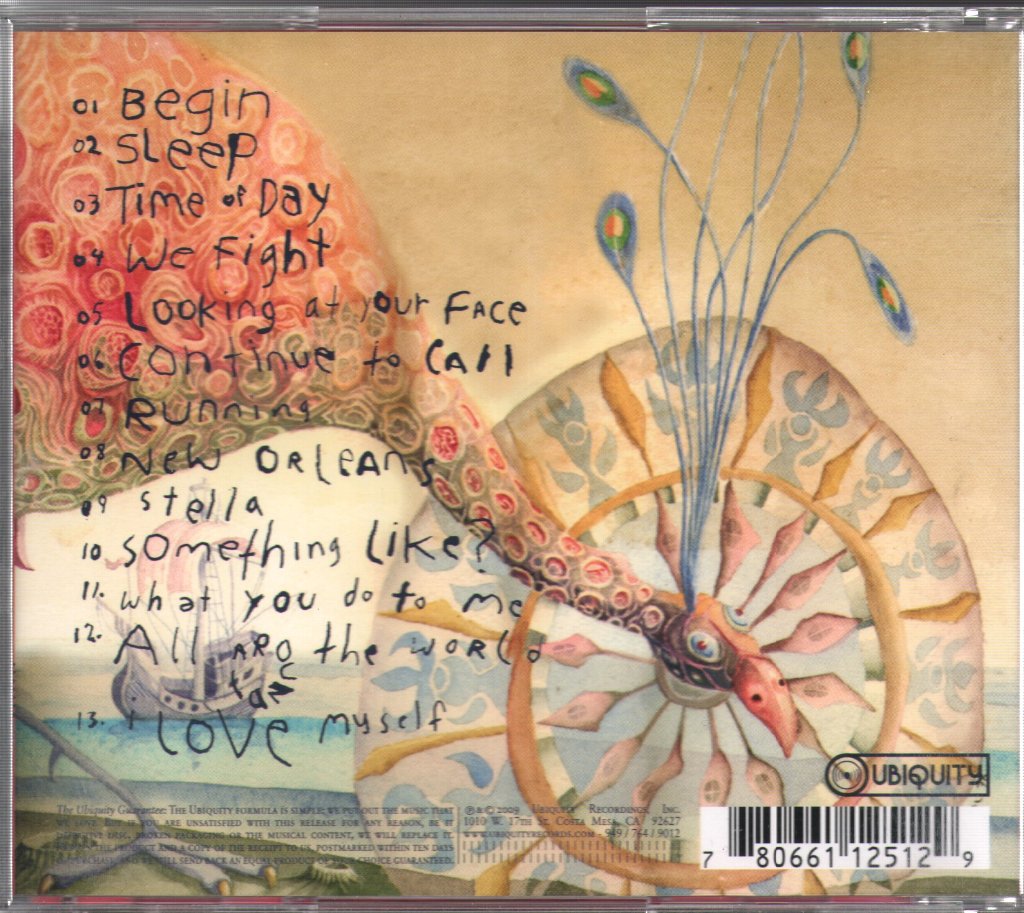 01 Begin
02 Sleep
03 Time of Day
04 We Fight
05 Looking at your Face
06 Continue to Call
07 Running
08 New Orleans
09 Stella
10 Something Like?
11. what you do to me
12. All around the world
13. i Love myself
UBIQUITY
The Ubiquity Guarantee: THE UBIQUITY FORMULA IS SIMPLE: WE PUT OUT THE MUSIC THAT
WE LOVE. YOU ARE UNSATISFIED WITH THIS RELEASE FOR ANY REASON, BE IT
DEFECTIVE DISC, BROKEN PACKAGING OR THE MUSICAL CONTENT, WE WILL REPLACE IT.
THE PRODUCT AND A COPY OF THE RECEIPT TO US, POSTMARKED WITHIN TEN DAYS
PURCHASE, AND WE WILL SEND BACK AN EQUAL PRODUCT OF YOUR CHOICE GUARANTEED.
℗&© 2009 UBIQUITY RECORDINGS, INC.
1010 W. 17TH ST. COSTA MESA, CA 92627
WWW.UBIQUITYRECORDS.COM - 949 / 764 / 9012
7 80661 12512 9